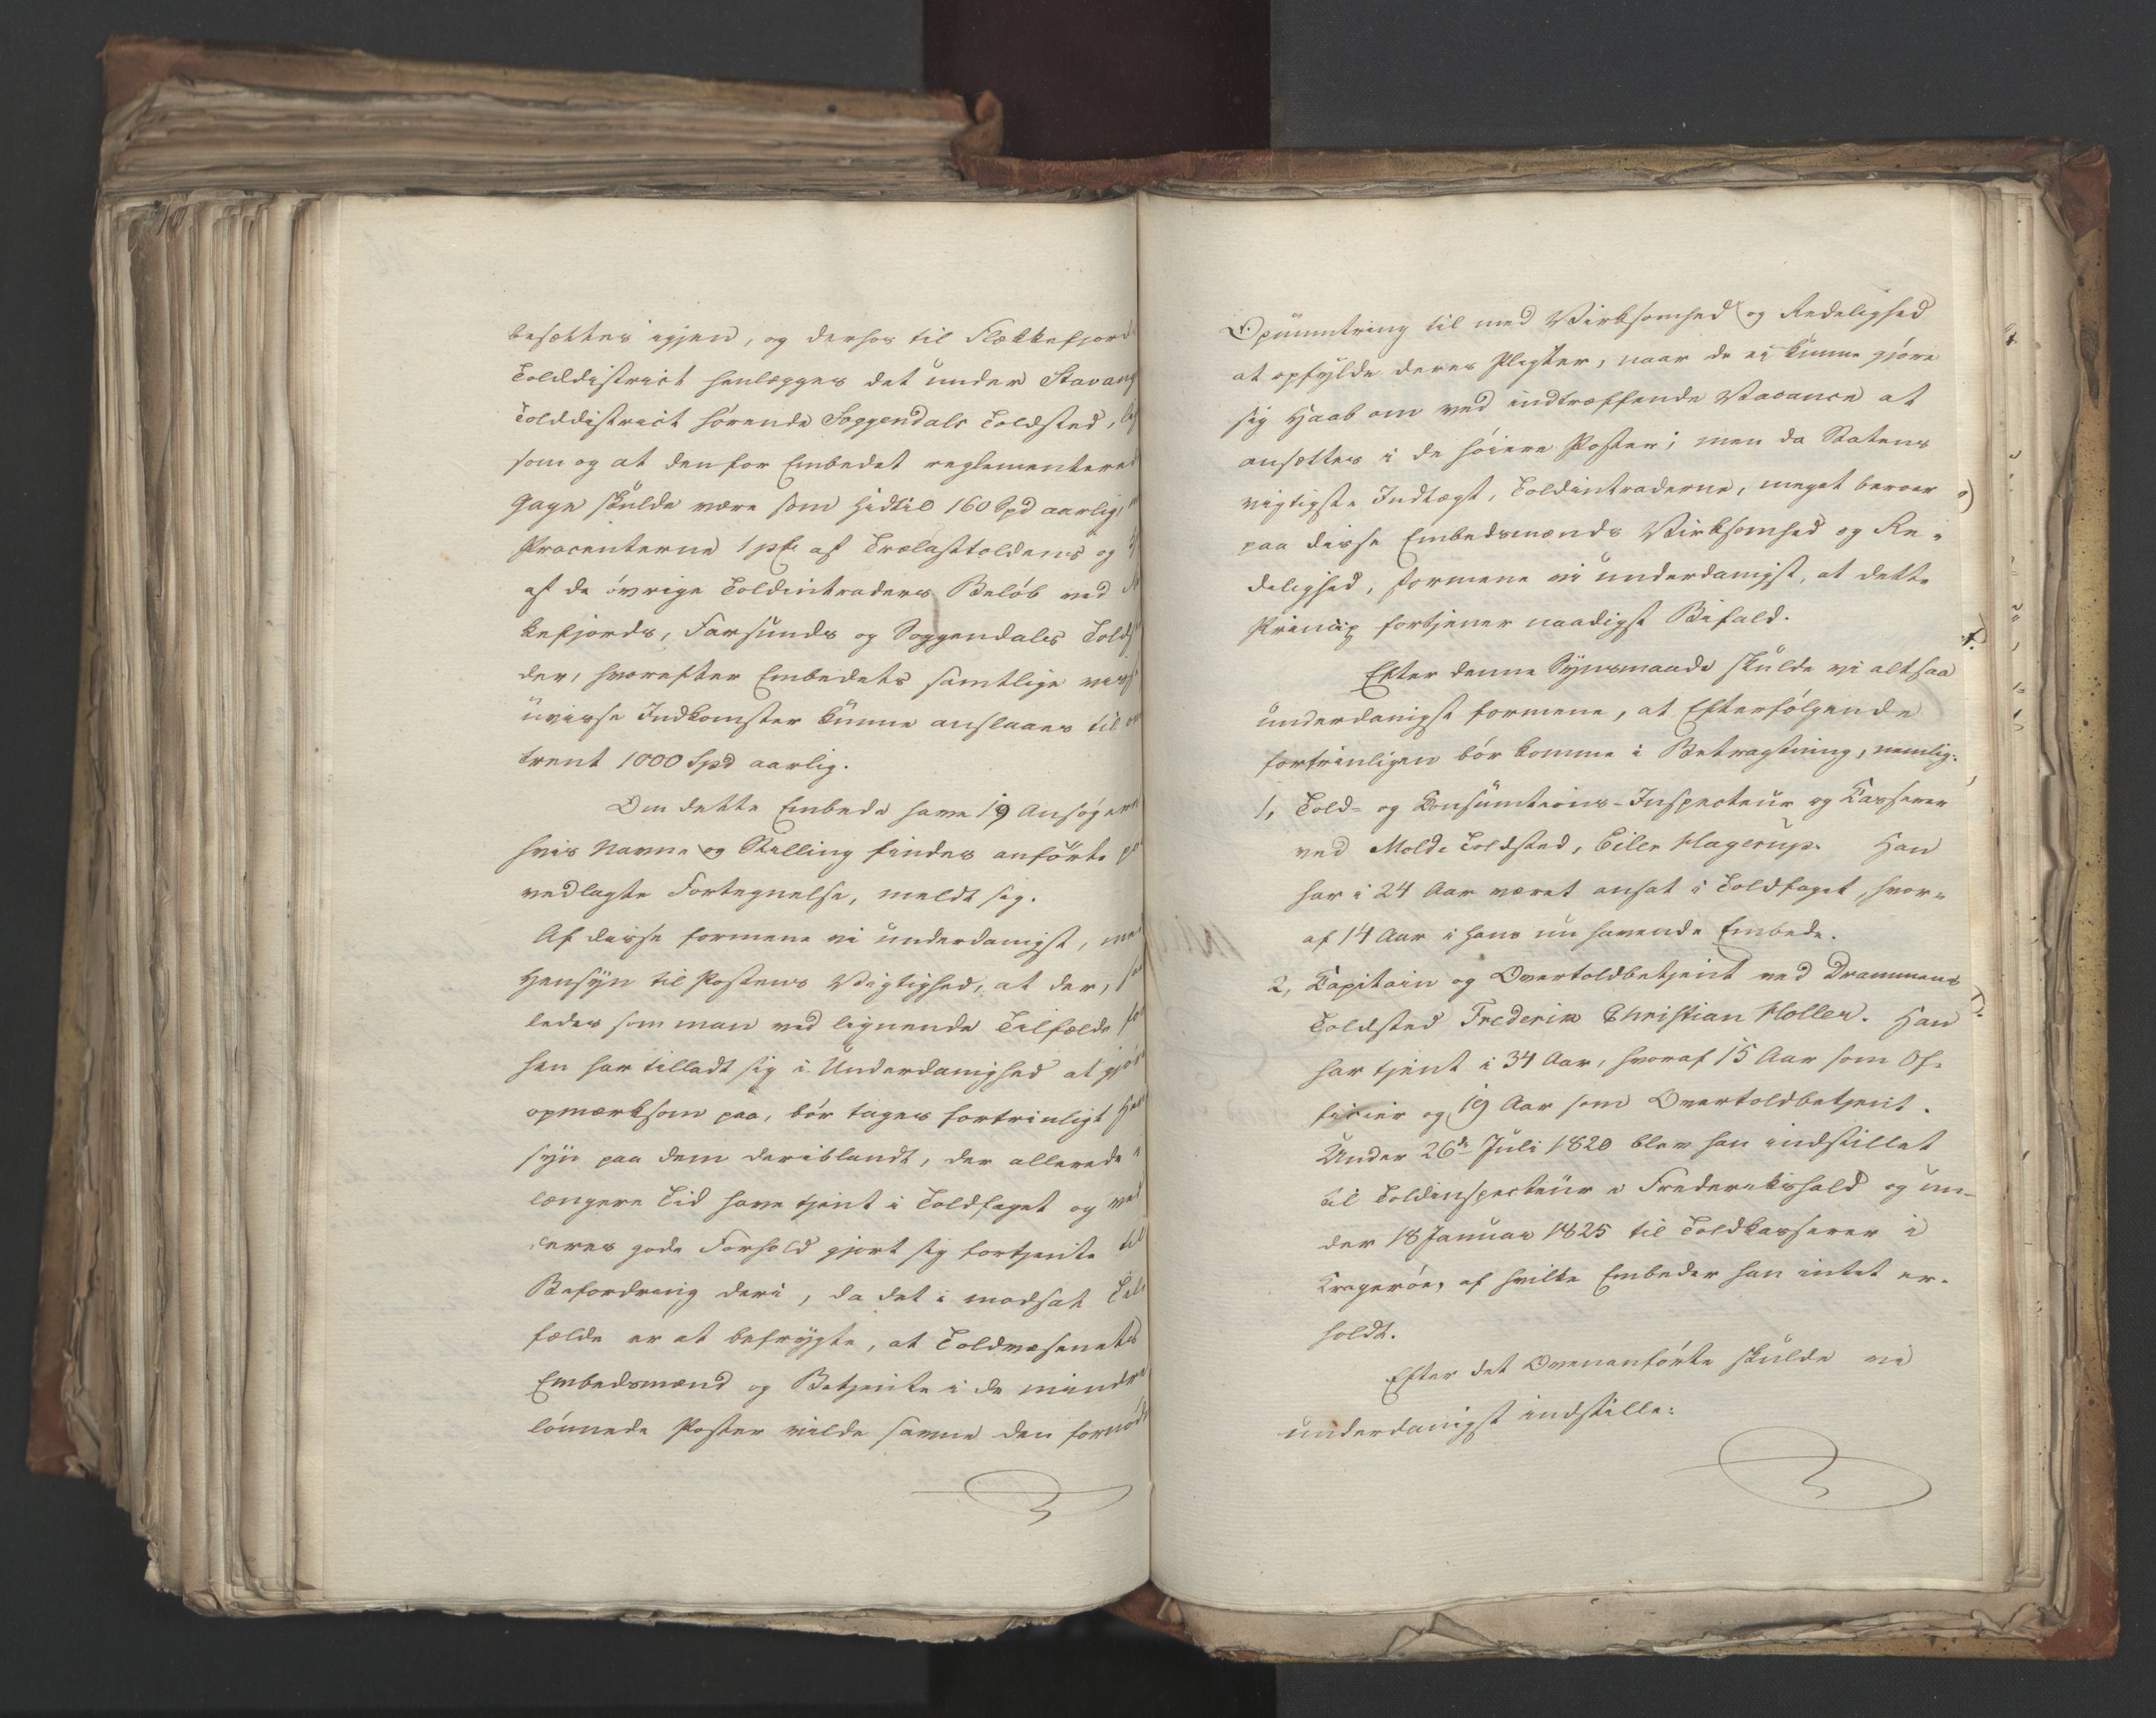 besættes igjen, og derhos til Flekkefjords
Tolddistrict henlægges det under Stavang
Tolddistrict hørende Soggendals Toldsted,
som og at den for Embedet reglementerede
Gage skulde være som hidtil 160 Spd aarlig,
Procenterne 1 pCt. af Trælasttoldens og
af de øvrige Toldintraders Beløb ved
kefjords, Farsunds og Soggendals Tolds
der, hvorefter Embedets samtlige visse
uvisse Indkomster kunne anslaaes til om
trent 1000 Spd aarlig.
Om dette Embede have 19 Ansøgere
hvis Navne og Stilling findes anførte paa
vedlagte Fortegnelse, meldt sig.
Af disse formene vi underdanigst, med
Hensyn til Postens Vigtighed, at der, saa
ledes som man ved lignende Tilfælde for
hen har tilladt sig i Underdanighed at gjøre
opmærksom paa, bør tages fortrinligt Hen
syn paa dem deriblandt, der allerede i
længere Tid have tjent i Toldfaget og ved
deres gode Forhold gjort sig fortjente til
Befordring deri, da det i modsat Til-
fælde er at befrygte, at Toldvæsenets
Embedsmænd og Betjente i de mindre
lønnede Poster vilde savne den fornød
Opmuntring til med Virksomhed og Redelighed
at opfylde deres Pligter, naar de ei kunne gjøre
sig Haab om ved indtræffende Vacance at
ansættes i de høiere Poster; men da Statens
vigtigste Indtægt, Toldintraderne, meget beroer
paa disse Embedsmænds Virksomhed og Re-
delighed, formene vi underdanigst, at dette
Princip fortjener naadigst Bifald.
Efter denne Synsmaade skulde vi altsaa
underdanigst formene, at Efterfølgende
fortrinligen bør komme i Betragtning, nemlig:
1, Told- og Consumtions-Inspecteur og Kasserer
ved Molde Toldsted, Eiler Hagerup. Han
har i 24 Aar været ansat i Toldfaget, hvor-
af 14 Aar i hans nu havende Embede.
2, Capitain og Overtoldbetjent ved Drammens
Toldsted Frederik Christian Holler. Han
har tjent i 34 Aar, hvoraf 15 Aar som Of-
ficier og 19 Aar som Overtoldbetjent.
Under 26de Juli 1820 blev han indstillet
til Toldinspecteur i Frederikshald og un-
der 18 Januar 1825 til Toldkasserer i
Kragerøe, af hvilke Embeder han intet er-
holdt.
Efter det Ovenanførte skulde vi
underdanigst indstille: